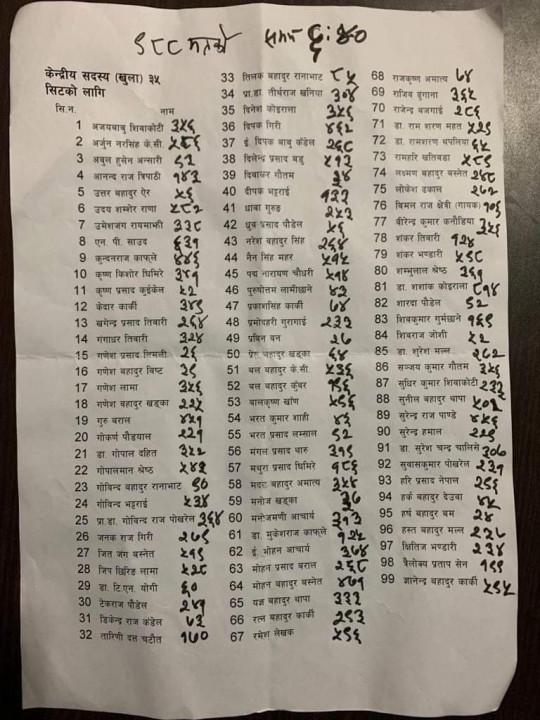 ९८८ मतको समय ६:४०
केन्द्रीय सदस्य (खुला) ३५
सिटको लागि
सि.न. नाम
1 अजयबाबु शिवाकोटी ३५६
2 अर्जुन नरसिंह के.सी. ५८६
3 अबुल हुसेन अन्सारी ८२
4 आनन्द राज त्रिपाठी १४२
5 उत्तर बहादुर ऐर ५६
6 उदय शम्शेर राणा ५८२
7 उमेशजंग रायमाझी ३३८
8 एन. पी. साउद ६३१
9 कुन्दनराज काफ्ले ४४६
10 कृष्ण किशोर घिमिरे ३४१
11 कृष्ण प्रसाद कुईकेल ५२
12 केदार कार्की ३४९
13 खगेन्द्र प्रसाद तिवारी २६४
14 गंगाधर तिवारी ३२४
15 गणेश प्रसाद तिमली २६
16 गणेश बहादुर विष्ट २९
17 गणेश लामा ३५६
18 गणेश बहादुर खड्का २२५
19 गुरु बराल ४५१
20 गोकर्ण पौडयाल २२१
21 डा. गोपाल दहित ३५२
22 गोपालमान श्रेष्ठ ५४२
23 गोविन्द बहादुर रानाभाट ९०
24 गोविन्द भट्टराई ५३४
25 प्रा.डा. गोविन्द राज पोखरेल ३६४
26 जनक राज गिरी २७९
27 जित जंग बस्नेत ५१९
28 जिप छिरिङ लामा ५२८
29 डा. टि.एन. योगी ६०
30 टेकराज पौडेल २४१
31 डिकेन्द्र राज कंडेल ७३
32 तारिणी दत्त चटौत १७०
33 तिलक बहादुर रानाभाट ८५
34 प्रा.डा. तीर्थराज खनिया ३०४
35 दिनेश कोइराला ३५६
36 दिपक गिरी ४६२
37 ई. दिपक बाबु कंडेल २६८
38 दिलेन्द्र प्रसाद बडु ५१३
39 दिवाकर गौतम ३४
40 दीपक भट्टराई १२२
41 धाबा गुरुङ २५३
42 ध्रुव प्रसाद पौडेल ५६
43 नरेश बहादुर सिंह २६४
44 नैन सिंह महर ५१५
45 पद्म नारायण चौधरी ५१४
46 पुरुषोत्तम लामीछाने ४२
47 प्रकाशसिंह कार्की ७४
48 प्रमोदहरी गुरागाई २३२
49 प्रबिन बन २७
50 प्रेम बहादुर खड्का ६४
51 बल बहादुर के.सी. ५३६
52 बल बहादुर कुंवर १५६
53 बालकृष्ण खाँण ५५६
54 भरत कुमार शाही ४६
55 भरत प्रसाद लम्साल ५२
56 मंगल प्रसाद थारु ३१९
57 मथुरा प्रसाद घिमिरे १८६
58 मदन बहादुर अमात्य ३५४
59 मनोज खड्का ३७
60 मनोजमणी आचार्य ३१३
61 डा. मुकेशराज काफ्ले १२५
62 ई. मोहन आचार्य ३७४
63 मोहन प्रसाद बराल २६८
64 मोहन बहादुर बस्नेत ४७१
65 यज्ञ बहादुर थापा ३३२
66 रत्न बहादुर कार्की २९३
67 रमेश लेखक ५९६
68 राजकृष्ण अमात्य ७४
69 राजिव ढुंगाना ३६५
70 राजेन्द्र बजगाई २८६
71 डा. राम शरण महत ५२९
72 डा. रामशरण थपलिया ६५
73 रामहरि खतिवडा ५८९
74 लक्ष्मण बहादुर बस्नेत २४८
75 लोकेश ढकाल २७२
76 बिमल राज क्षेत्री (गायक) १०६
77 वीरेन्द्र कुमार कनौडिया ३५६
78 शंकर तिवारी १२४
79 शंकर भण्डारी ५९८
80 शम्भुलाल श्रेष्ठ ३६१
81 डा. शशांक कोइराला ८१४
82 शारदा पौडेल ५२
83 शिवकुमार गुर्मछाने १६९
84 शिवराज जोशी ५२
85 डा. शुरेश मल्ल २७२
86 सञ्जय कुमार गौतम ३५६
87 सुधिर कुमार शिवाकोटी २३२
88 सुनील बहादुर थापा ५०२
89 सुरेन्द्र राज पाण्डे ४५६
90 सुरेन्द्र हमाल २२९
91 डा. सुरेश चन्द्र चालिसे ३०७
92 सुवासकुमार पोखरेल २३१
93 हरि प्रसाद नेपाल २५६
94 हर्क बहादुर देउबा ४५
95 हर्ष बहादुर बम २४
96 हस्त बहादुर मल्ल २२७
97 क्षितिज भण्डारी २३४
98 त्रैलोक्य प्रताप सेन १९९
99 ज्ञानेन्द्र बहादुर कार्की ५९५